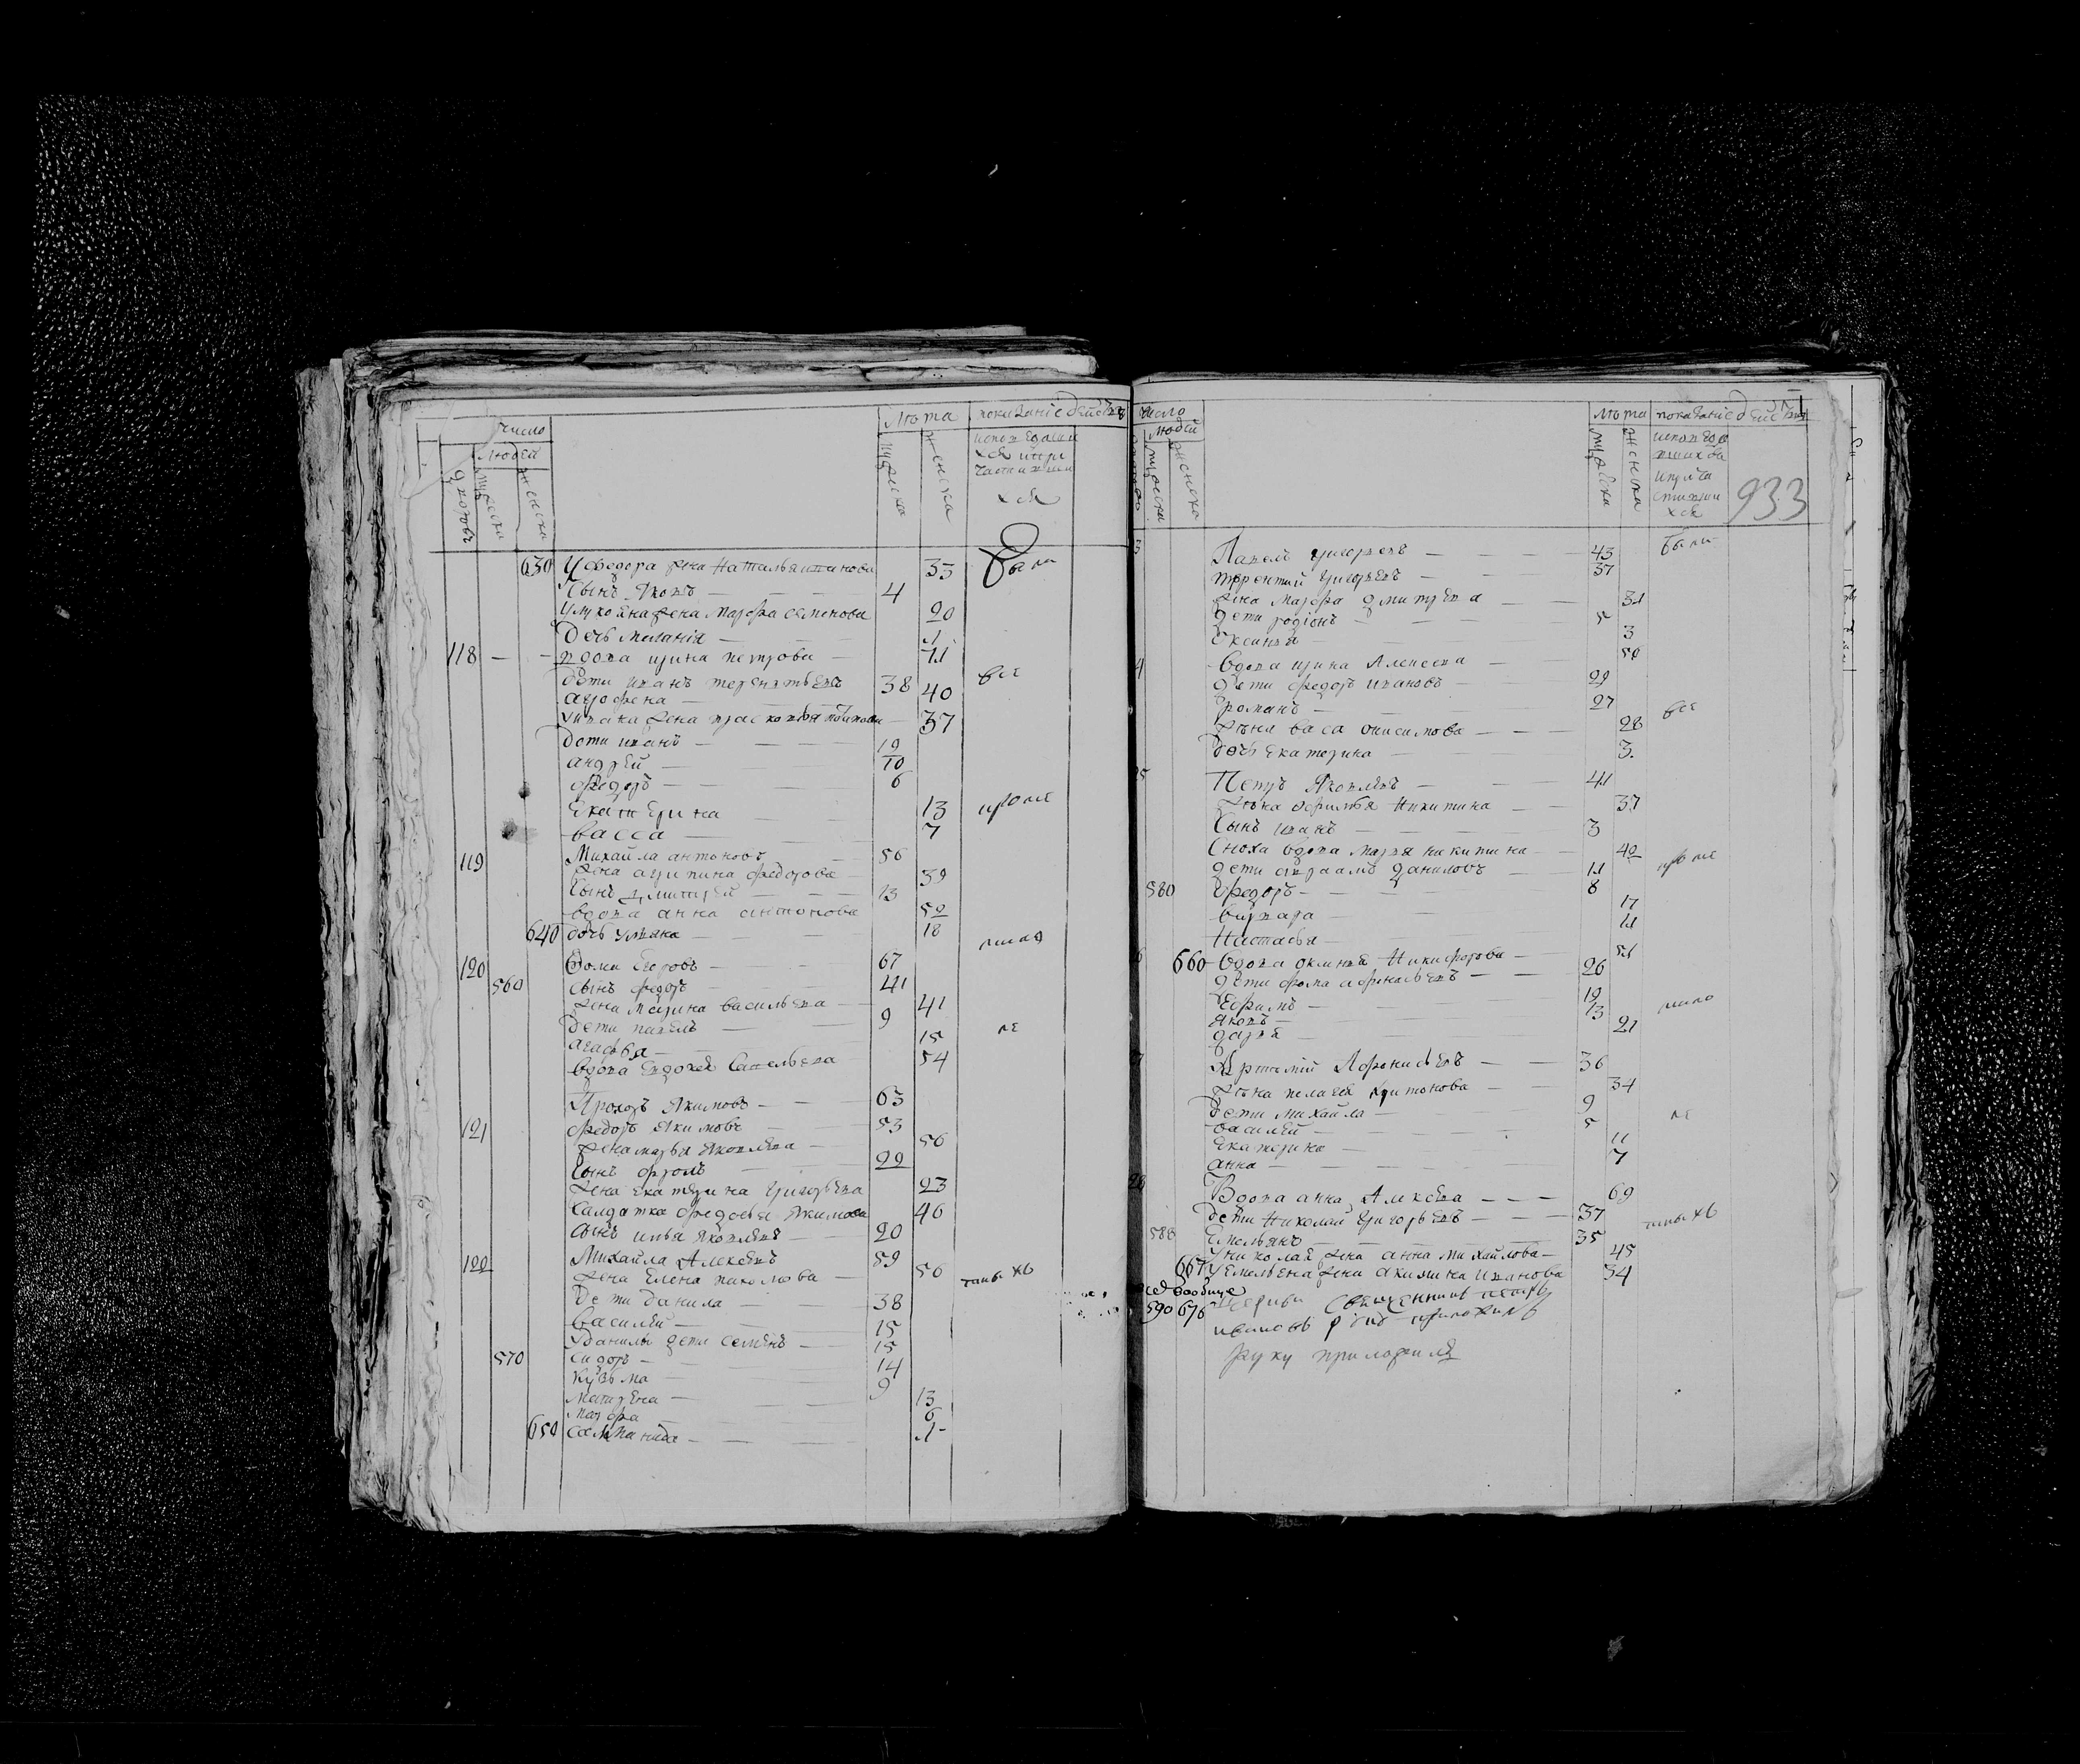 число
людей
дворовъ
мужеска
женска
лѣта
мужеска
женска
показаніе действа
исповедавши
хся и при
частивши
хся
630 У федора жена Наталья иванова 33 были
Сынъ Яковъ 4
жена Марфа семенова 20
Дочь меланія 1
118 вдова ирина петрова 71
дети иванъ терентьевъ 38 все
агрофена 40
у ивана жена прасковья 37
дети иванъ 19
андрей 10
федоръ 6
Екатерина 13 кроме
васса 7
119 Михайла антоновъ 56
жена агрипина федорова 39
Сынъ дмитрей 13
вдова анна антонова 52
640 дочь ульяна 18 мало
120 фома Егоровъ 67
560 сынъ федоръ 41
жена Марина васильева 41
дети павелъ 9 ле
агафья 15
вдова Евдокея Савельева 54
Прохоръ Якимовъ 63
121 федоръ Якимовъ 53
жена марья Яковлева 56
сынъ фролъ 22
жена екатерина григорьева 23
салдатка федосья Якимова 46
сынъ илья Яковлевъ 20
122 Михайла Алексеевъ 59
жена Елена 56 тныхъ
дети данила 38
василей 15
У данилы дети семенъ 15
570 сидоръ 14
кузьма 9
матрена 13
марфа 6
650 1
число
людей
мужеска
женска
лѣта
мужеска
женска
показаніе действа
исповедо
вшихся
и прича
стивши
хся
933
Павелъ григорьевъ 43 были
терентий григорьевъ 37
жена марфа дмитрева 31
дети родіонъ 5
Ксенья 3
4 вдова ирина Алексеева 50
дети федоръ ивановъ 29
романъ 27 все
жена васа онисимова 28
дочь екатерина 3
5 Петръ Яковлевъ 41
жена офимья Никитина 37
Сынъ иванъ 3
Сноха вдова марья никитина 40
дети авраамъ даниловъ 11 кроме
580 федоръ 8
варвара 17
Настасья 11
6 660 вдова окинья Никифорова 51
дети фома афонасьевъ 26
Ефимъ 19 мало
яковъ 13
дарья 21
7 Артемій Афонасьевъ 36
жена пелагея 34
дети михайла 9 ле
василей 5
екатерина 11
анна 7
28 Вдова анна Алексева 69
дети Николай григорьевъ 37 тныхъ
588 Емельянъ 35
У николая жена анна михайлова 45
667 У емельяна жена акилина иванова 34
всехъ вообще
590 676 священникъ петръ
ивановъ руку приложилъ
руку приложилъ